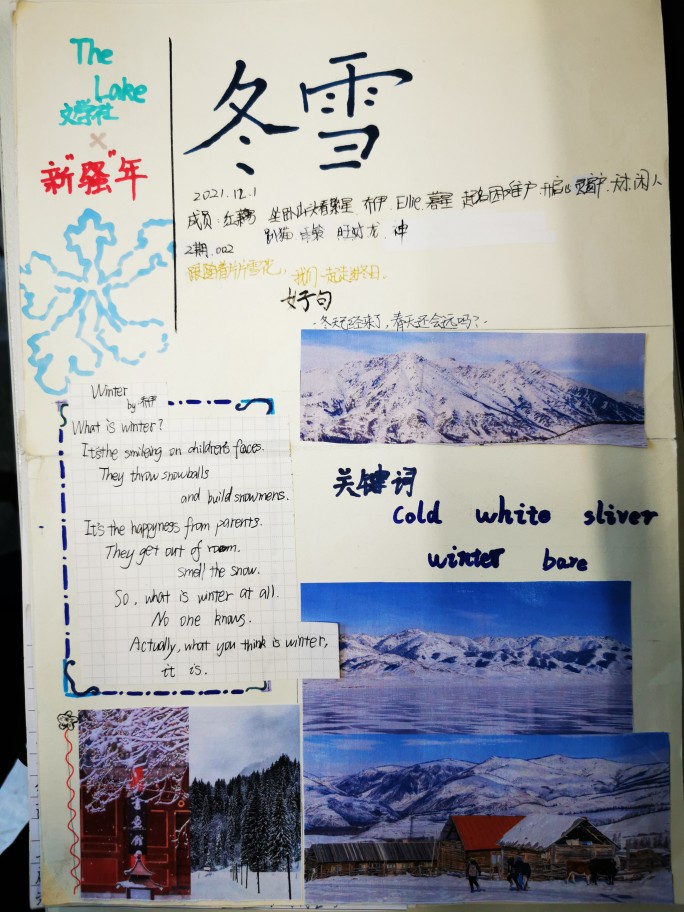 The
Lake
文学社
×
新"骚"年
冬雪
2021.12.1
成员：红藕 坐卧山头看繁星 布尹 Elke 暮星 起名困难户
趴猫 旺财 龙 神
2期.002
跟随着片片雪花，我们一起走进冬日.
好句
·冬天已经来了，春天还会远吗？·
Winter
by 布尹
What is winter?
It's the smileing on children's faces.
They throw snowballs
and build snowmens.
It's the happyness from parents.
They get out of room.
smell the snow.
So, what is winter at all.
No one knows.
Actually, what you think is winter,
it is.
关键词
cold white sliver
winter bare